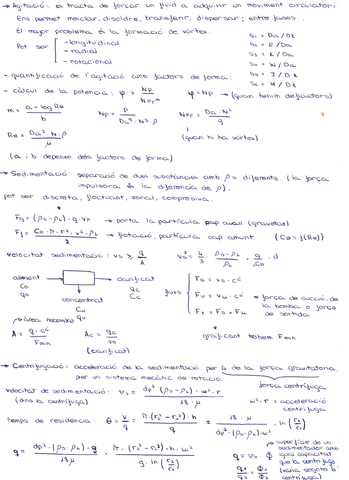 → Agitació: es tracta de forçar un fluid a adquirir un moviment circulatori
Ens permet mesclar, disoldre, transferir, dispersar; entre fases.
El major problema és la formació de vòrtex.
Pot ser
- longitudinal
- radial
- rotacional
S1 = Da / Dt
S2 = E / Da
S3 = L / Da
S4 = W / Da
S5 = J / Dt
S6 = H / Dt
- quantificació de l'agitació amb factors de forma:
- càlcul de la potència: φ = Np / NFr^m
φ = Np → (quan tenim deflactors)
m = a - log Re / b
Np = P / Da⁵ · N³ · ρ
NFr = Da · N² / g
Re = Da² · N · ρ / μ
(quan hi ha vòrtex)
(a i b depenen dels factors de forma)
→ Sedimentació: separació de dues substàncies amb ρs diferents. (la força
impulsora és la diferència de ρ).
pot ser discreta, floculant, zonal, compresiva.
Fg = (ρs - ρL) · g · Vp → porta la partícula cap avall (gravetat)
Ff = CD · π · r² · v² · ρL / 2 → flotació, partícula cap amunt (CD = f(Re))
velocitat sedimentació: vs ≥ q / A
vs² = 4/3 · ρs - ρL / ρL · g / CD · d
aliment
C0
q0
clarificat
qc
Cc
concentrat
Cu
qu
fluxos
Fs = vs · C
Fu = vu · C → força de succió de
la bomba o força
de sortida
FT = Fs + Fu
àrea necessària
A = q · C / Fmin
Ac = q0 / vs
(clarificat)
graficant trobem Fmin
→ Centrifugació: acceleració de la sedimentació per de la força gravitatòria
per un sistema mecànic de rotació.
força centrífuga
velocitat de sedimentació: vs = dp² · (ρs - ρL) · w² · r / 18 · μ
(dins la centrífuga)
w² · r = acceleració
centrífuga
temps de residència: θ = V / q = π · (r2² - r1²) · h / q = 18 · μ / dp² · (ρs - ρL) · w² · ln (r2 / r1)
q = dp² · (ρs - ρL) · g / 18 μ · π · (r2² - r1²) · h · w² / g · ln (r2 / r1)
superfície de un
sedimentador amb
igual capacitat
que la centrífuga
q1 / q2 = Φ1 / Φ2